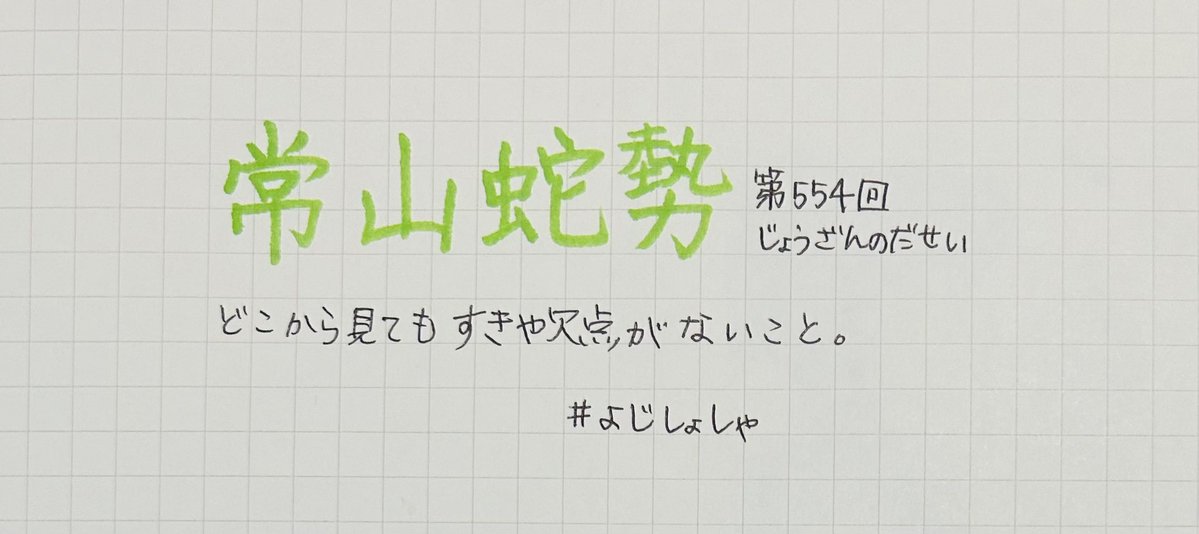 常山蛇勢
第554回
じょうざんのだせい
どこから見てもすきや欠点がないこと。
#よじしょしゃ